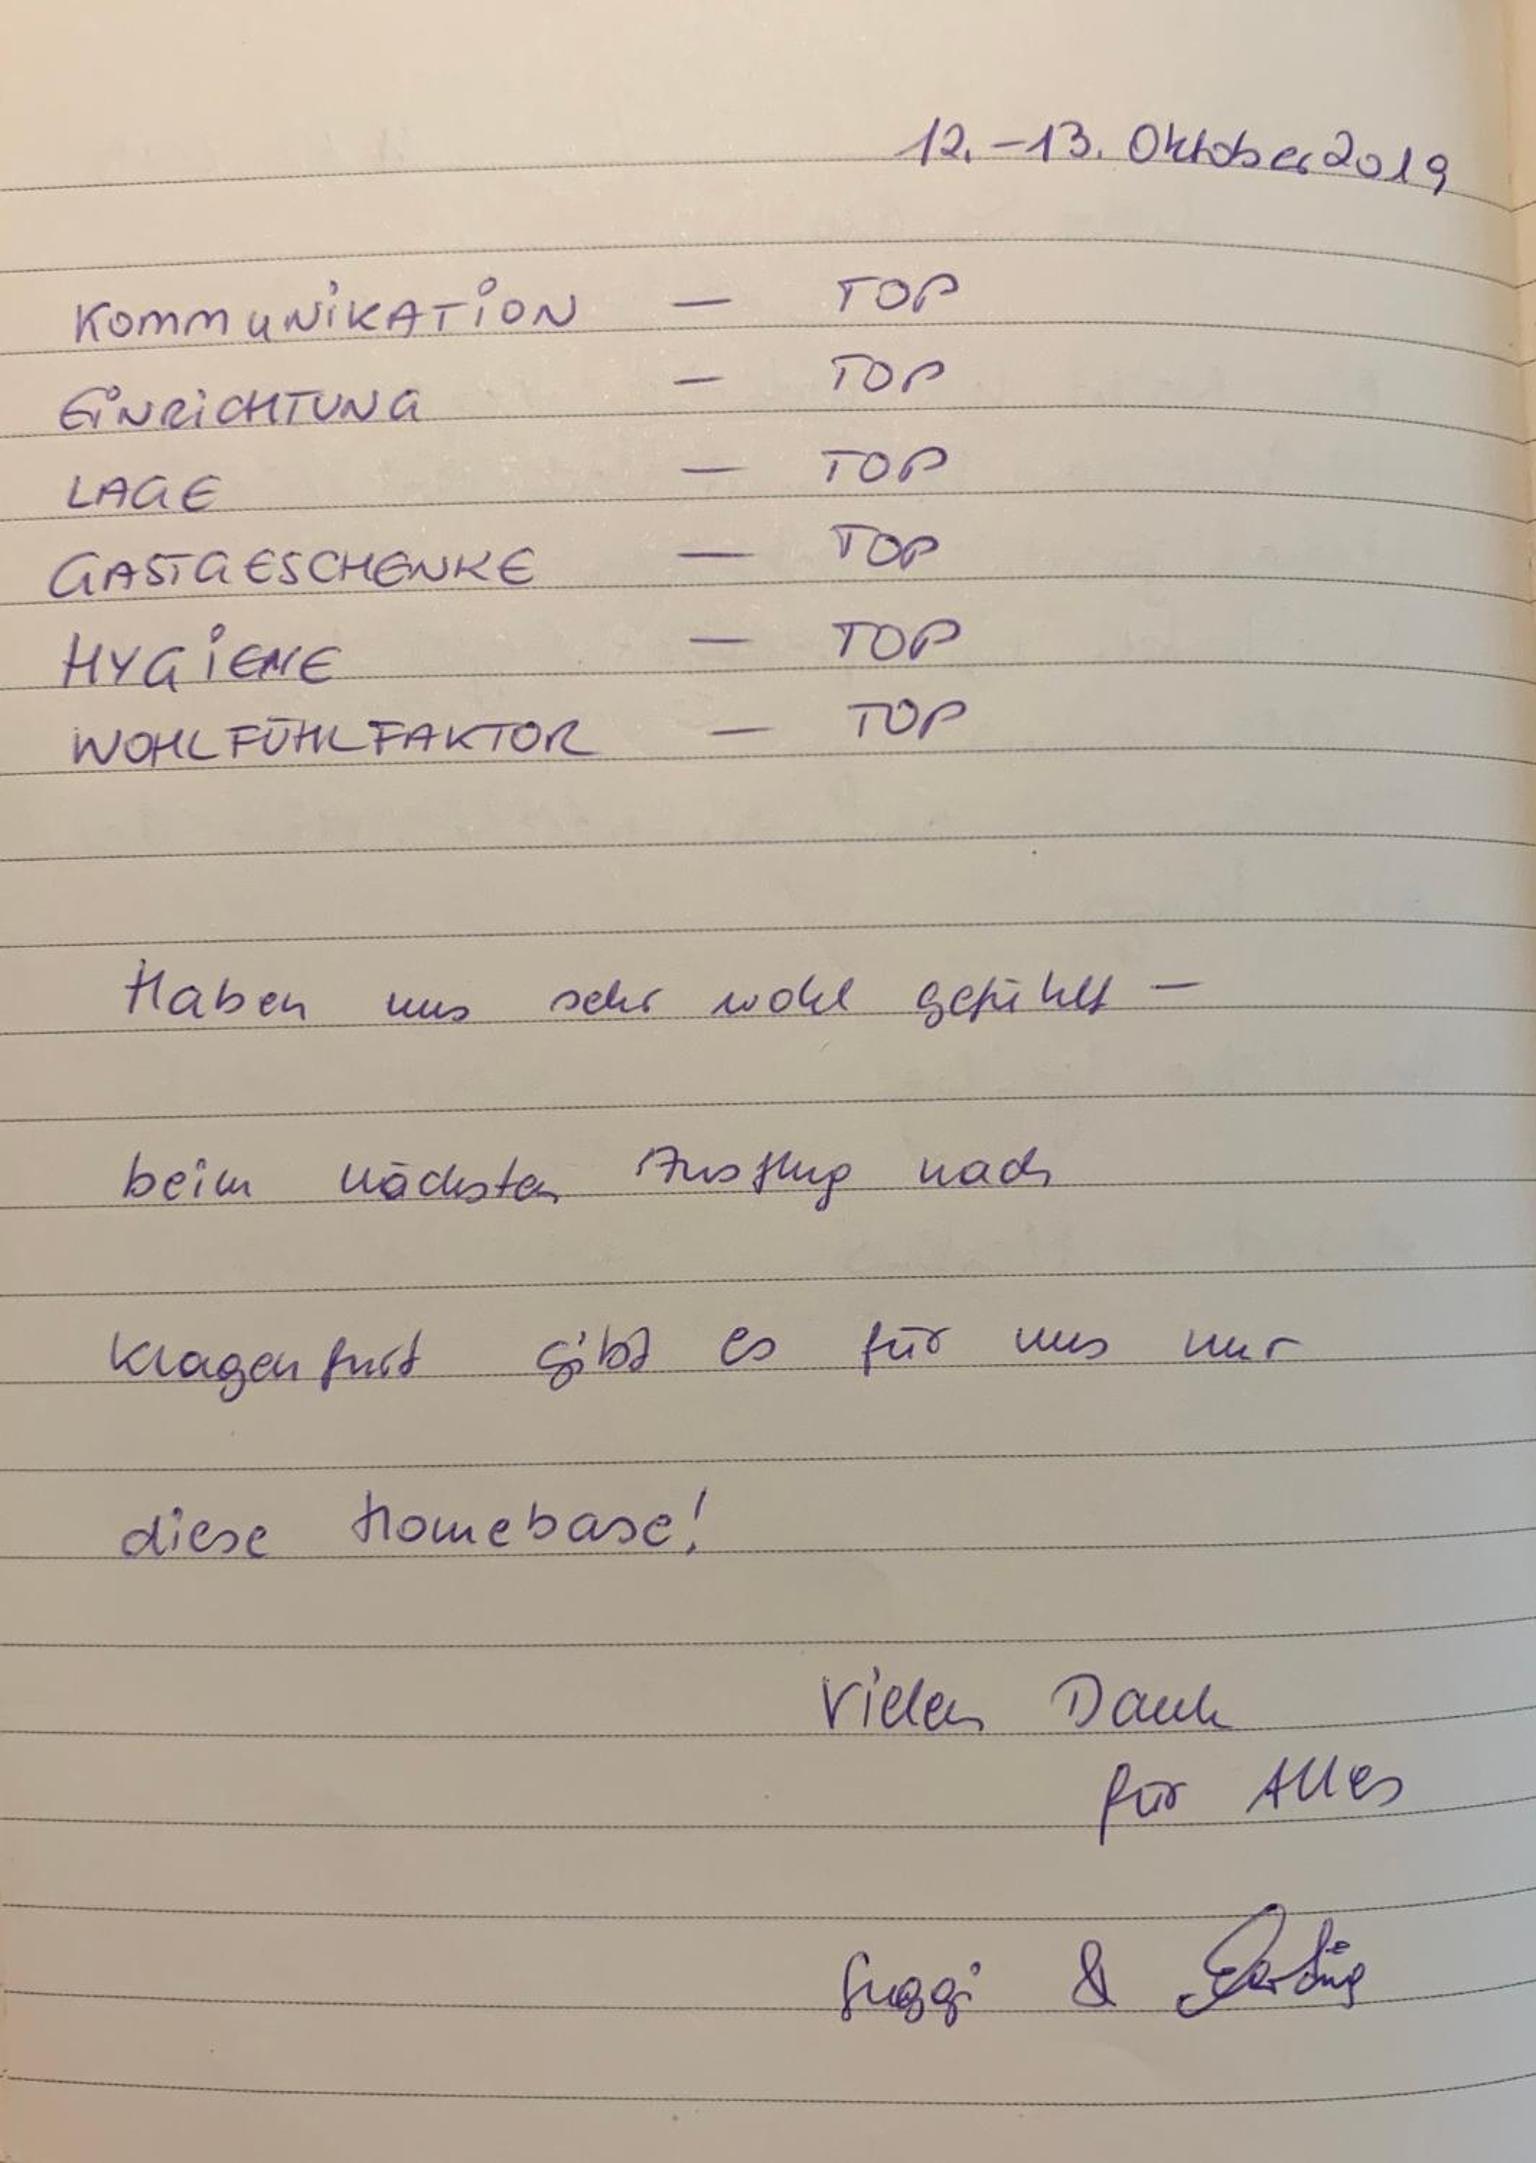 12.-13. Oktober 2019
KOMMUNIKATION — TOP
EINRICHTUNG — TOP
LAGE — TOP
GASTGESCHENKE — TOP
HYGIENE — TOP
WOHLFÜHLFAKTOR — TOP
Haben uns sehr wohl gefühlt —
beim nächsten Ausflug nach
Klagenfurt gibt es für uns nur
diese Homebase!
Vielen Dank
für Alles
&